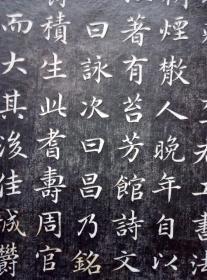 工書法
衍煙散人晚年自以
著有苔芳館詩文
曰詠次曰昌乃銘
積生此耆壽周官
而大其後佳城鬱